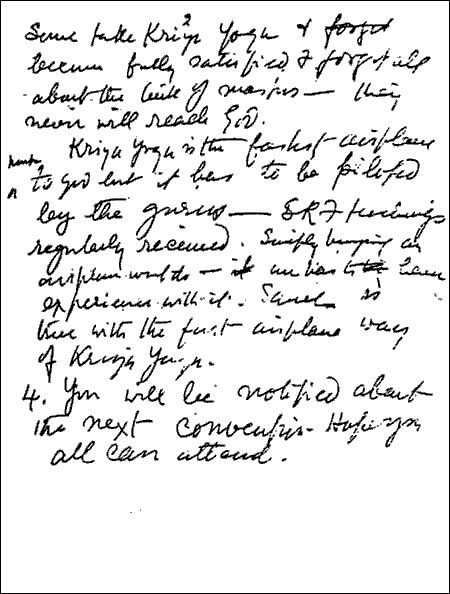 Some take Kriya Yoga & forget
become fully satisfied & forget all
about the link of masters — they
never will reach God.
Kriya Yoga is the fastest airplane
to God but it has to be piloted
by the gurus — SRF teachings
regularly received. Simply buying an
airplane won't do — it one has to have
experience with it. Same is
true with the fast airplane way
of Kriya Yoga.
4. You will be notified about
the next convention. Hope you
all can attend.